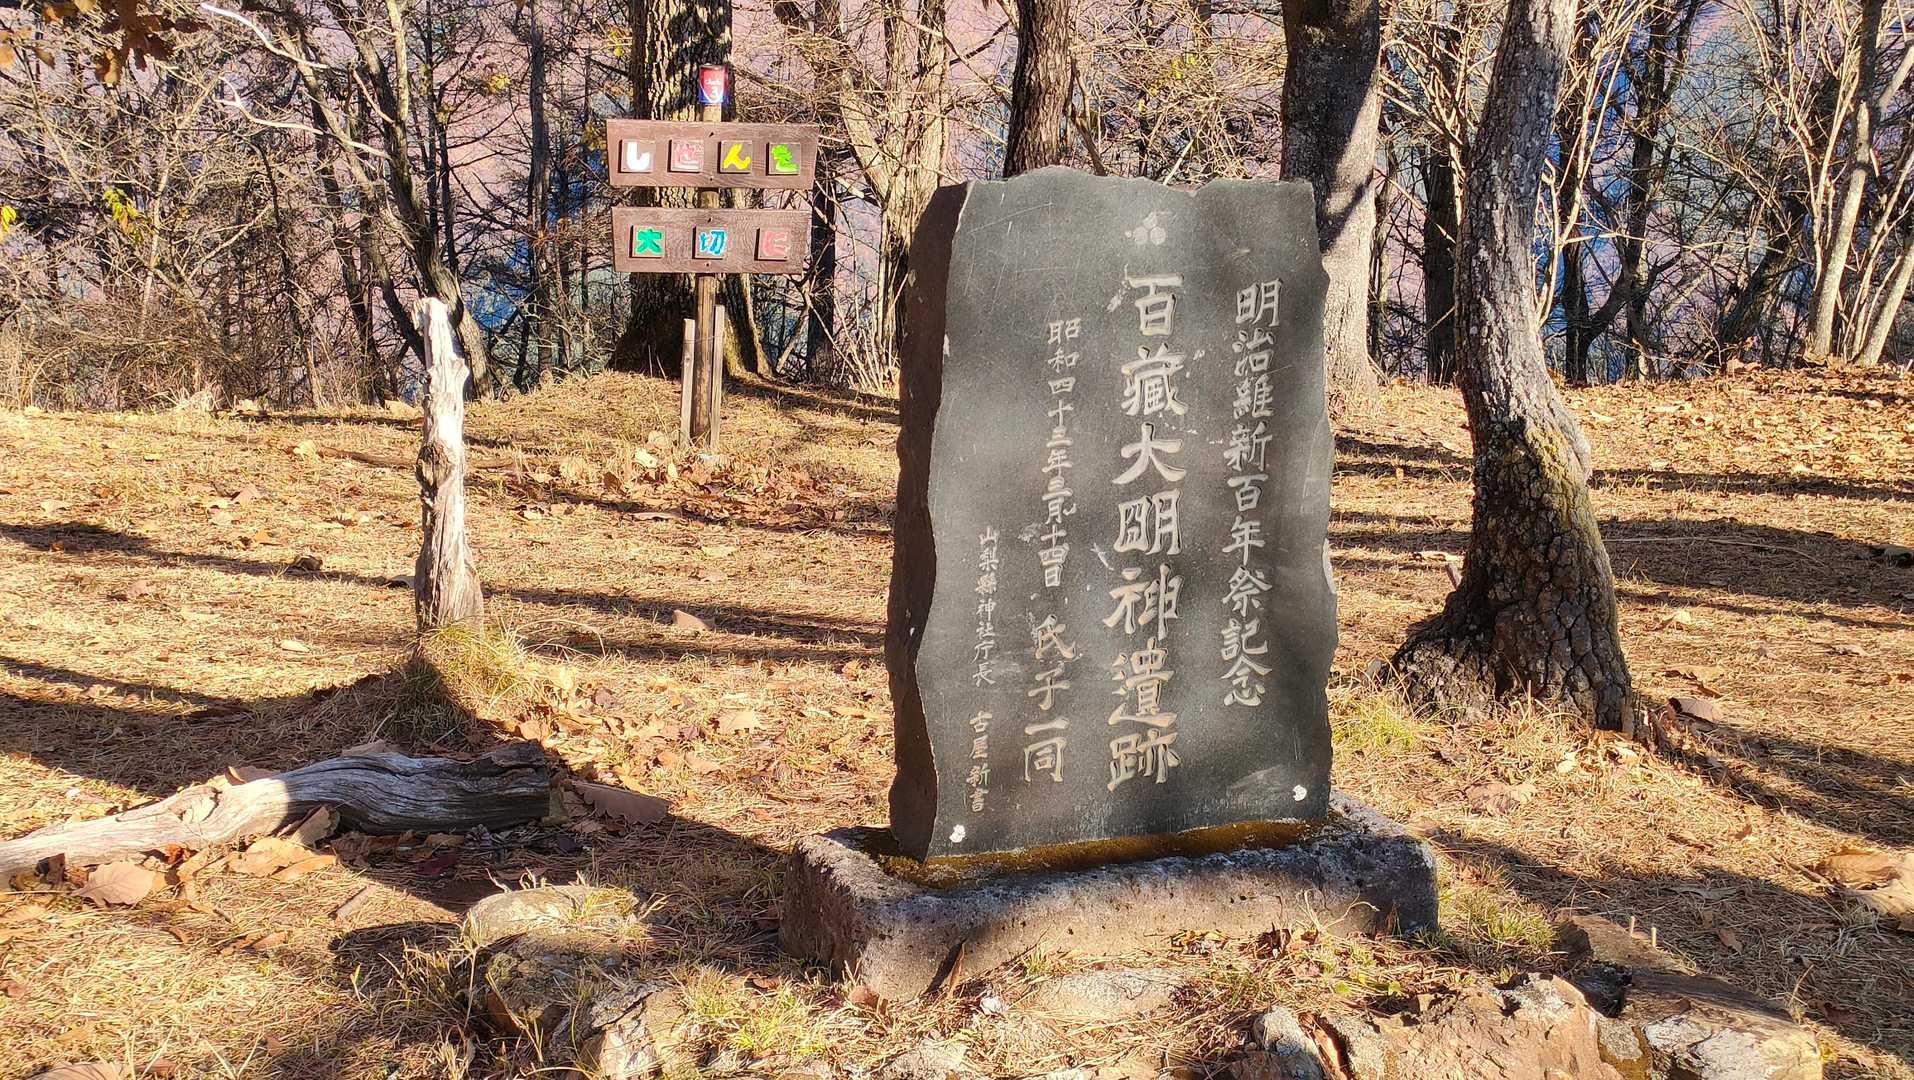 しぜんを
大切に
明治維新百年祭記念
百藏大明神遺跡
昭和四十三年三月十四日 氏子一同
山梨縣神社庁長 古屋新書